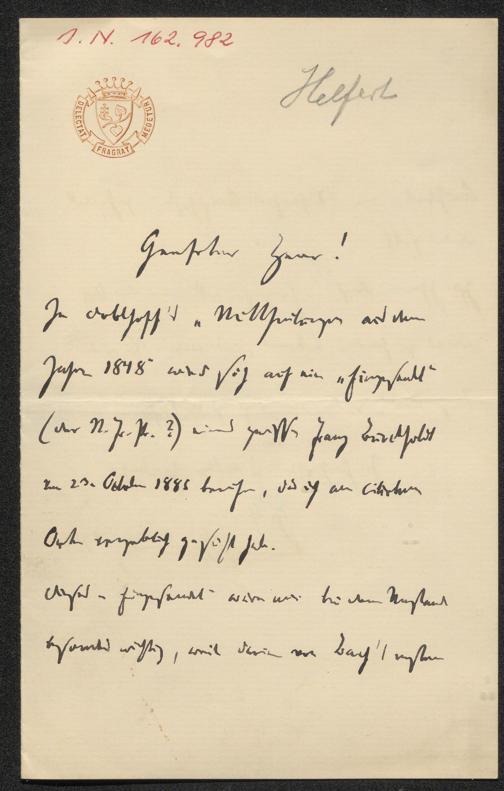 I. N. 162.982
Helfert
DELECTAT FRAGRAT MEDETUR
Geehrter Herr!
In Doblhoff's „Mittheilungen aus dem
Jahre 1848" wird sich auf ein „Eingesandt"
(der N. Fr. Pr. ?) eines gewissen Franz
vom 23. October 1885 berufen, das ich am citirten
Orte vergeblich gesucht habe.
Dieses „Eingesandt" wäre mir bei dem Umstand
besonders wichtig, weil darin von Bach's